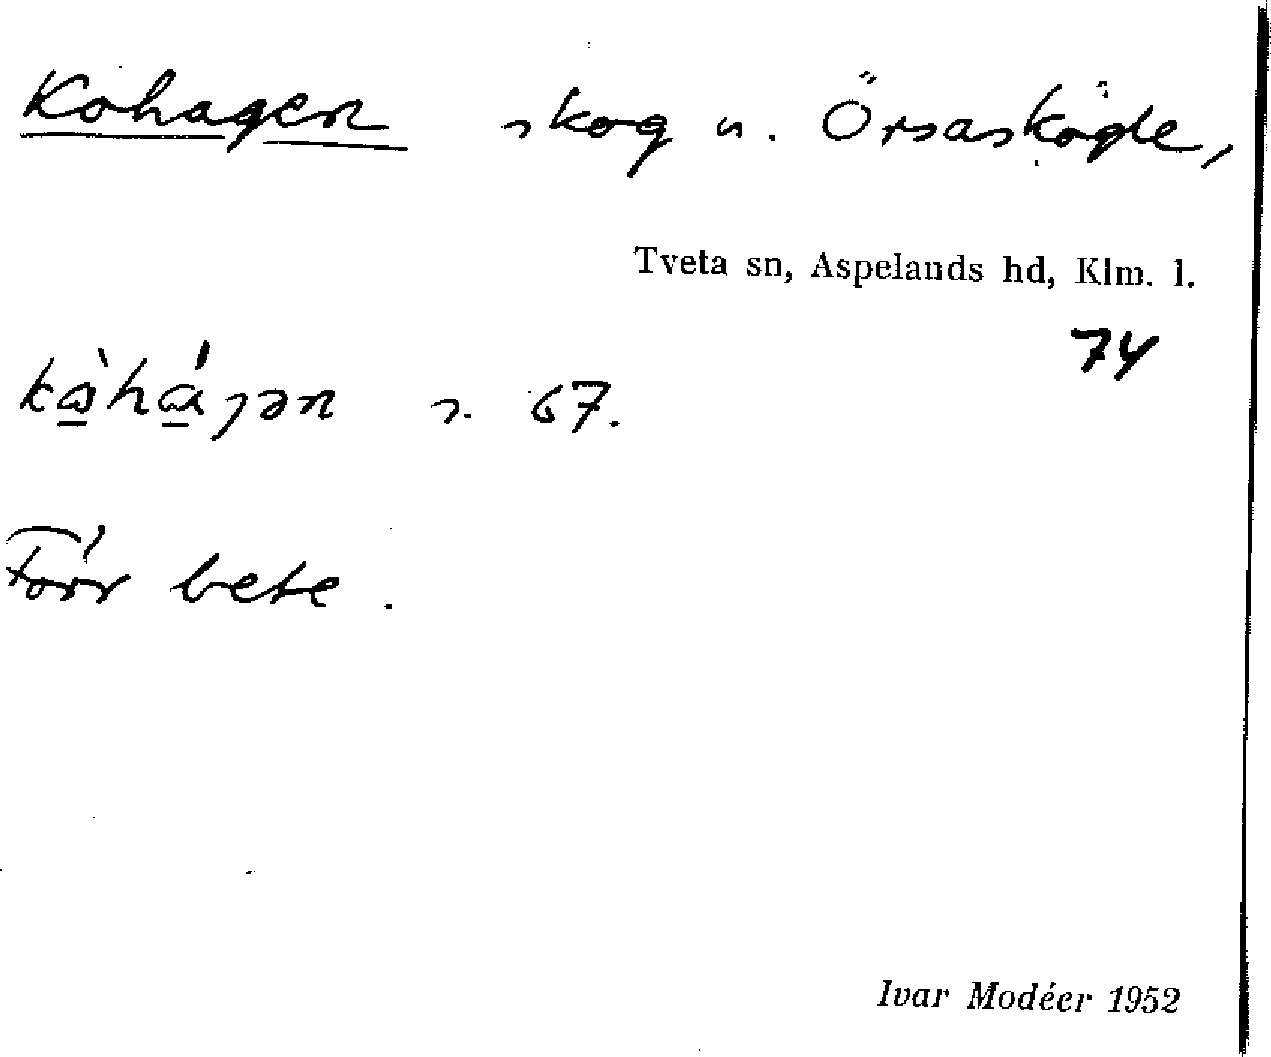 Kohagen skog u. Örsaskögle,
Tveta sn, Aspelands hd, Klm. l.
74
kå̀hájən s. 67.
Förr bete.
Ivar Modéer 1952